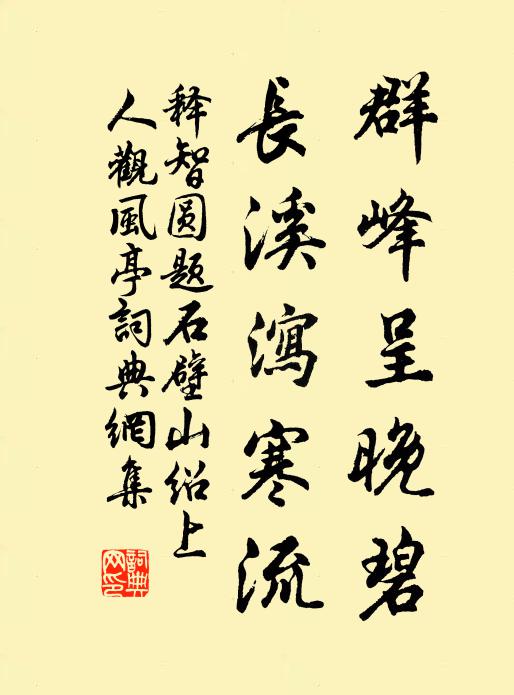 群峰呈晚碧
長溪瀉寒流
释智圆题石壁山绍上
人觀風亭詞典網集
詞典網印